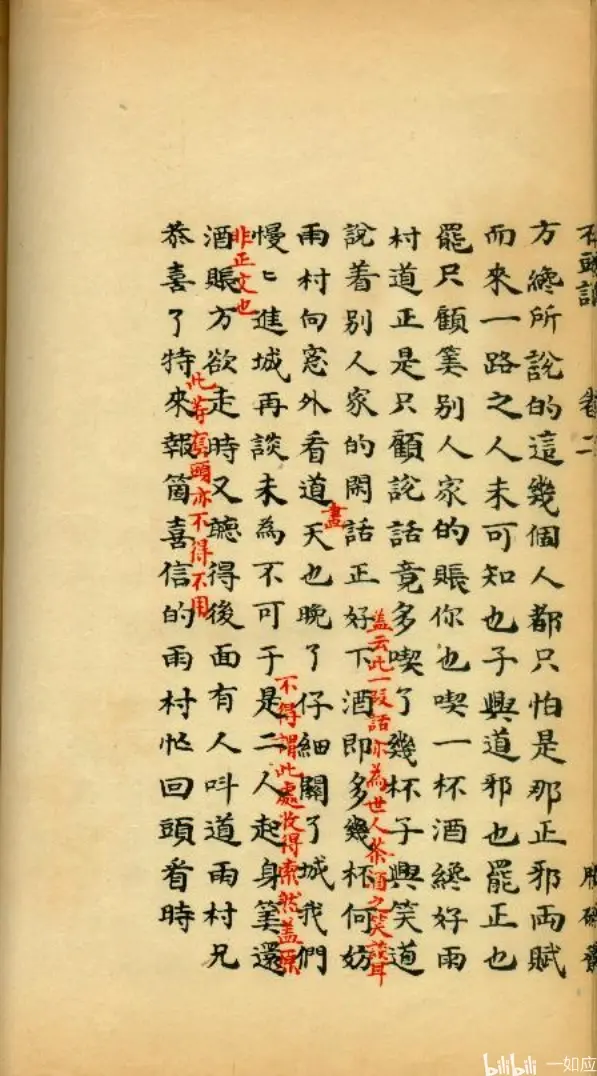 石頭記 卷二 脂硯齋
方纔所說的這幾個人都只怕是那正邪両賦
而來一路之人未可知也子興道邪也罷正也
罷只顧筭別人家的賬你也喫一杯酒纔好雨
村道正是只顧說話竟多喫了幾杯子興笑道
蓋云此一段話亦為世人茶酒之笑談耳
說着別人家的閒話正好下酒即多幾杯何妨
畫
雨村向窓外看道天也晚了仔細關了城我們
不得謂此處收得索然蓋原
慢〻進城再談未為不可于是二人起身筭還
非正文也
酒賬方欲走時又聽得後面有人叫道雨村兄
此等套頭亦不得不用
恭喜了特來報箇喜信的雨村忙回頭看時
bilibili 一如应